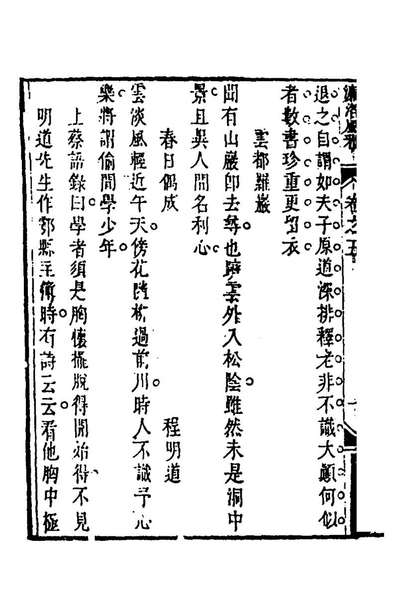 濂洛風雅 卷之五
退之自謂如夫子原道深排釋老非不識大顛何似
者數書珍重更留衣
雲都羅巖
聞有山巖卽去尋也躋雲外入松陰雖然未是洞中
景且異人間名利心
春日偶成 程明道
雲淡風輕近午天傍花隨柳過前川時人不識予心
樂將謂偷閒學少年
上蔡語錄曰學者須是胸懷擺脫得開始得不見
明道先生作鄠縣主簿時有詩云云看他胸中極